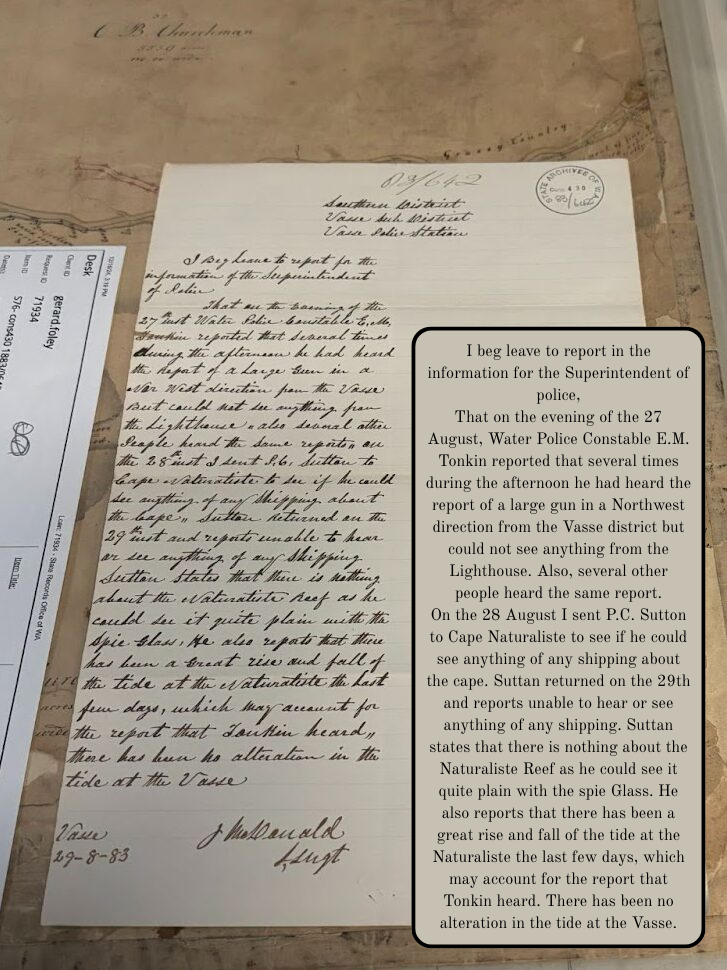 C B Churchman
83/642
STATE ARCHIVES OF W.A.
Cons 430
83/642
Southern District
Vasse Sub District
Vasse Police Station
I Beg leave to report for the
information of the Superintendent
of Police
That on the evening of the
27th inst Water Police Constable E.M.
Tonkin reported that several times
during the afternoon he had heard
the report of a Large Gun in a
Nor West direction from the Vasse
But could not see anything from
the Lighthouse, also several other
People heard the same report, on
the 28th inst I sent P.C. Sutton to
Cape Naturaliste to see if he could
see anything of any Shipping about
the Cape, Sutton returned on the
29th inst and reports unable to hear
or see anything of any Shipping
Sutton States that there is nothing
about the Naturaliste Reef as he
could see it quite plain with the
Spie Glass, He also reports that there
has been a Great rise and fall of
the tide at the Naturaliste the last
few days, which may account for
the report that Tonkin heard,,
there has been no alteration in the
tide at the Vasse
Vasse
29-8-83
J McDonald
Sergt
Desk
Client ID
gerard.foley
Request ID
71934
Item ID
Loan: 71934 - State Records Office of WA
Item Title:
I beg leave to report in the
information for the Superintendent of
police,
That on the evening of the 27
August, Water Police Constable E.M.
Tonkin reported that several times
during the afternoon he had heard the
report of a large gun in a Northwest
direction from the Vasse district but
could not see anything from the
Lighthouse. Also, several other
people heard the same report.
On the 28 August I sent P.C. Sutton
to Cape Naturaliste to see if he could
see anything of any shipping about
the cape. Suttan returned on the 29th
and reports unable to hear or see
anything of any shipping. Suttan
states that there is nothing about the
Naturaliste Reef as he could see it
quite plain with the spie Glass. He
also reports that there has been a
great rise and fall of the tide at the
Naturaliste the last few days, which
may account for the report that
Tonkin heard. There has been no
alteration in the tide at the Vasse.